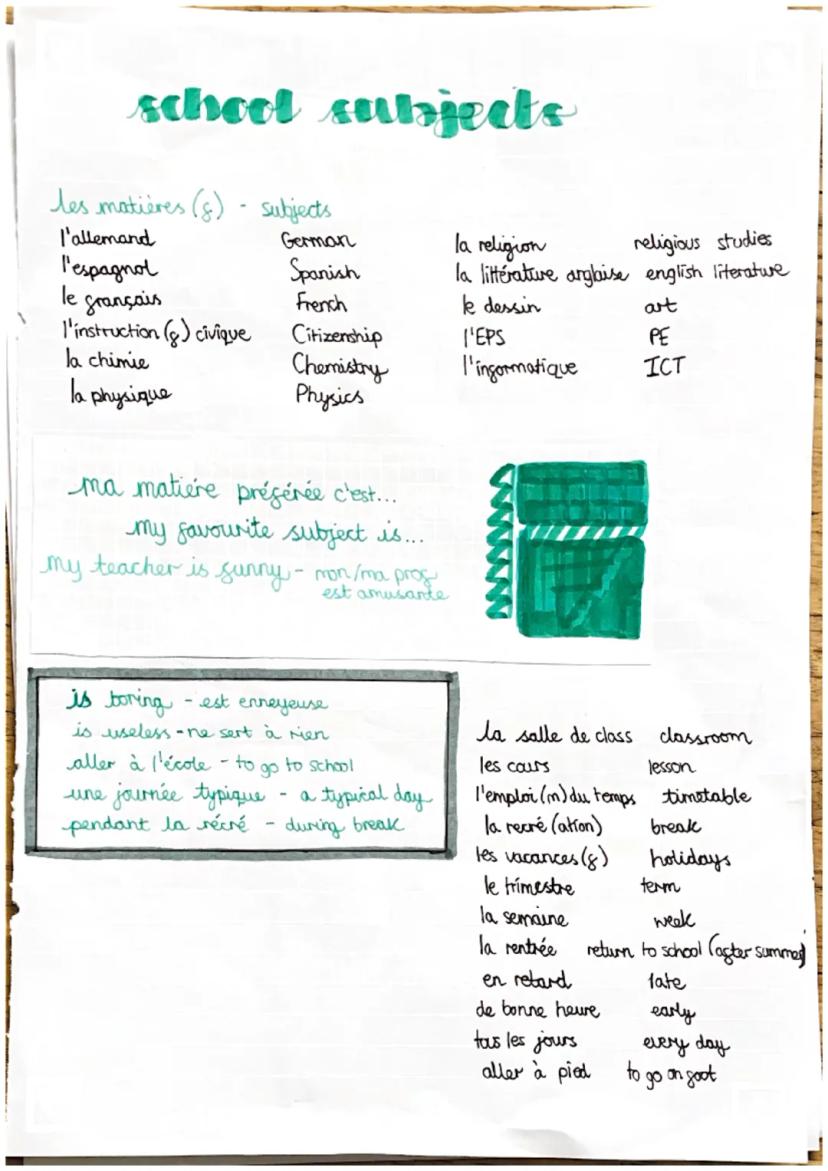 school subjects
les matières (f) - subjects
l'allemand German
l'espagnol Spanish
le français French
l'instruction (f) civique Citizenship
la chimie Chemistry
la physique Physics
la religion religious studies
la littérature anglaise english literature
le dessin art
l'EPS PE
l'informatique ICT
ma matière préférée c'est...
my favourite subject is...
my teacher is funny - mon/ma prof
est amusante
is boring - est enneyeuse
is useless - ne sert à rien
aller à l'école - to go to school
une journée typique - a typical day
pendant la récré - during break
la salle de class classroom
les cours lesson
l'emploi (m) du temps timetable
la recré (ation) break
les vacances (f) holidays
le trimestre term
la semaine week
la rentrée return to school (after summer)
en retard late
de bonne heure early
tous les jours every day
aller à pied to go on foot